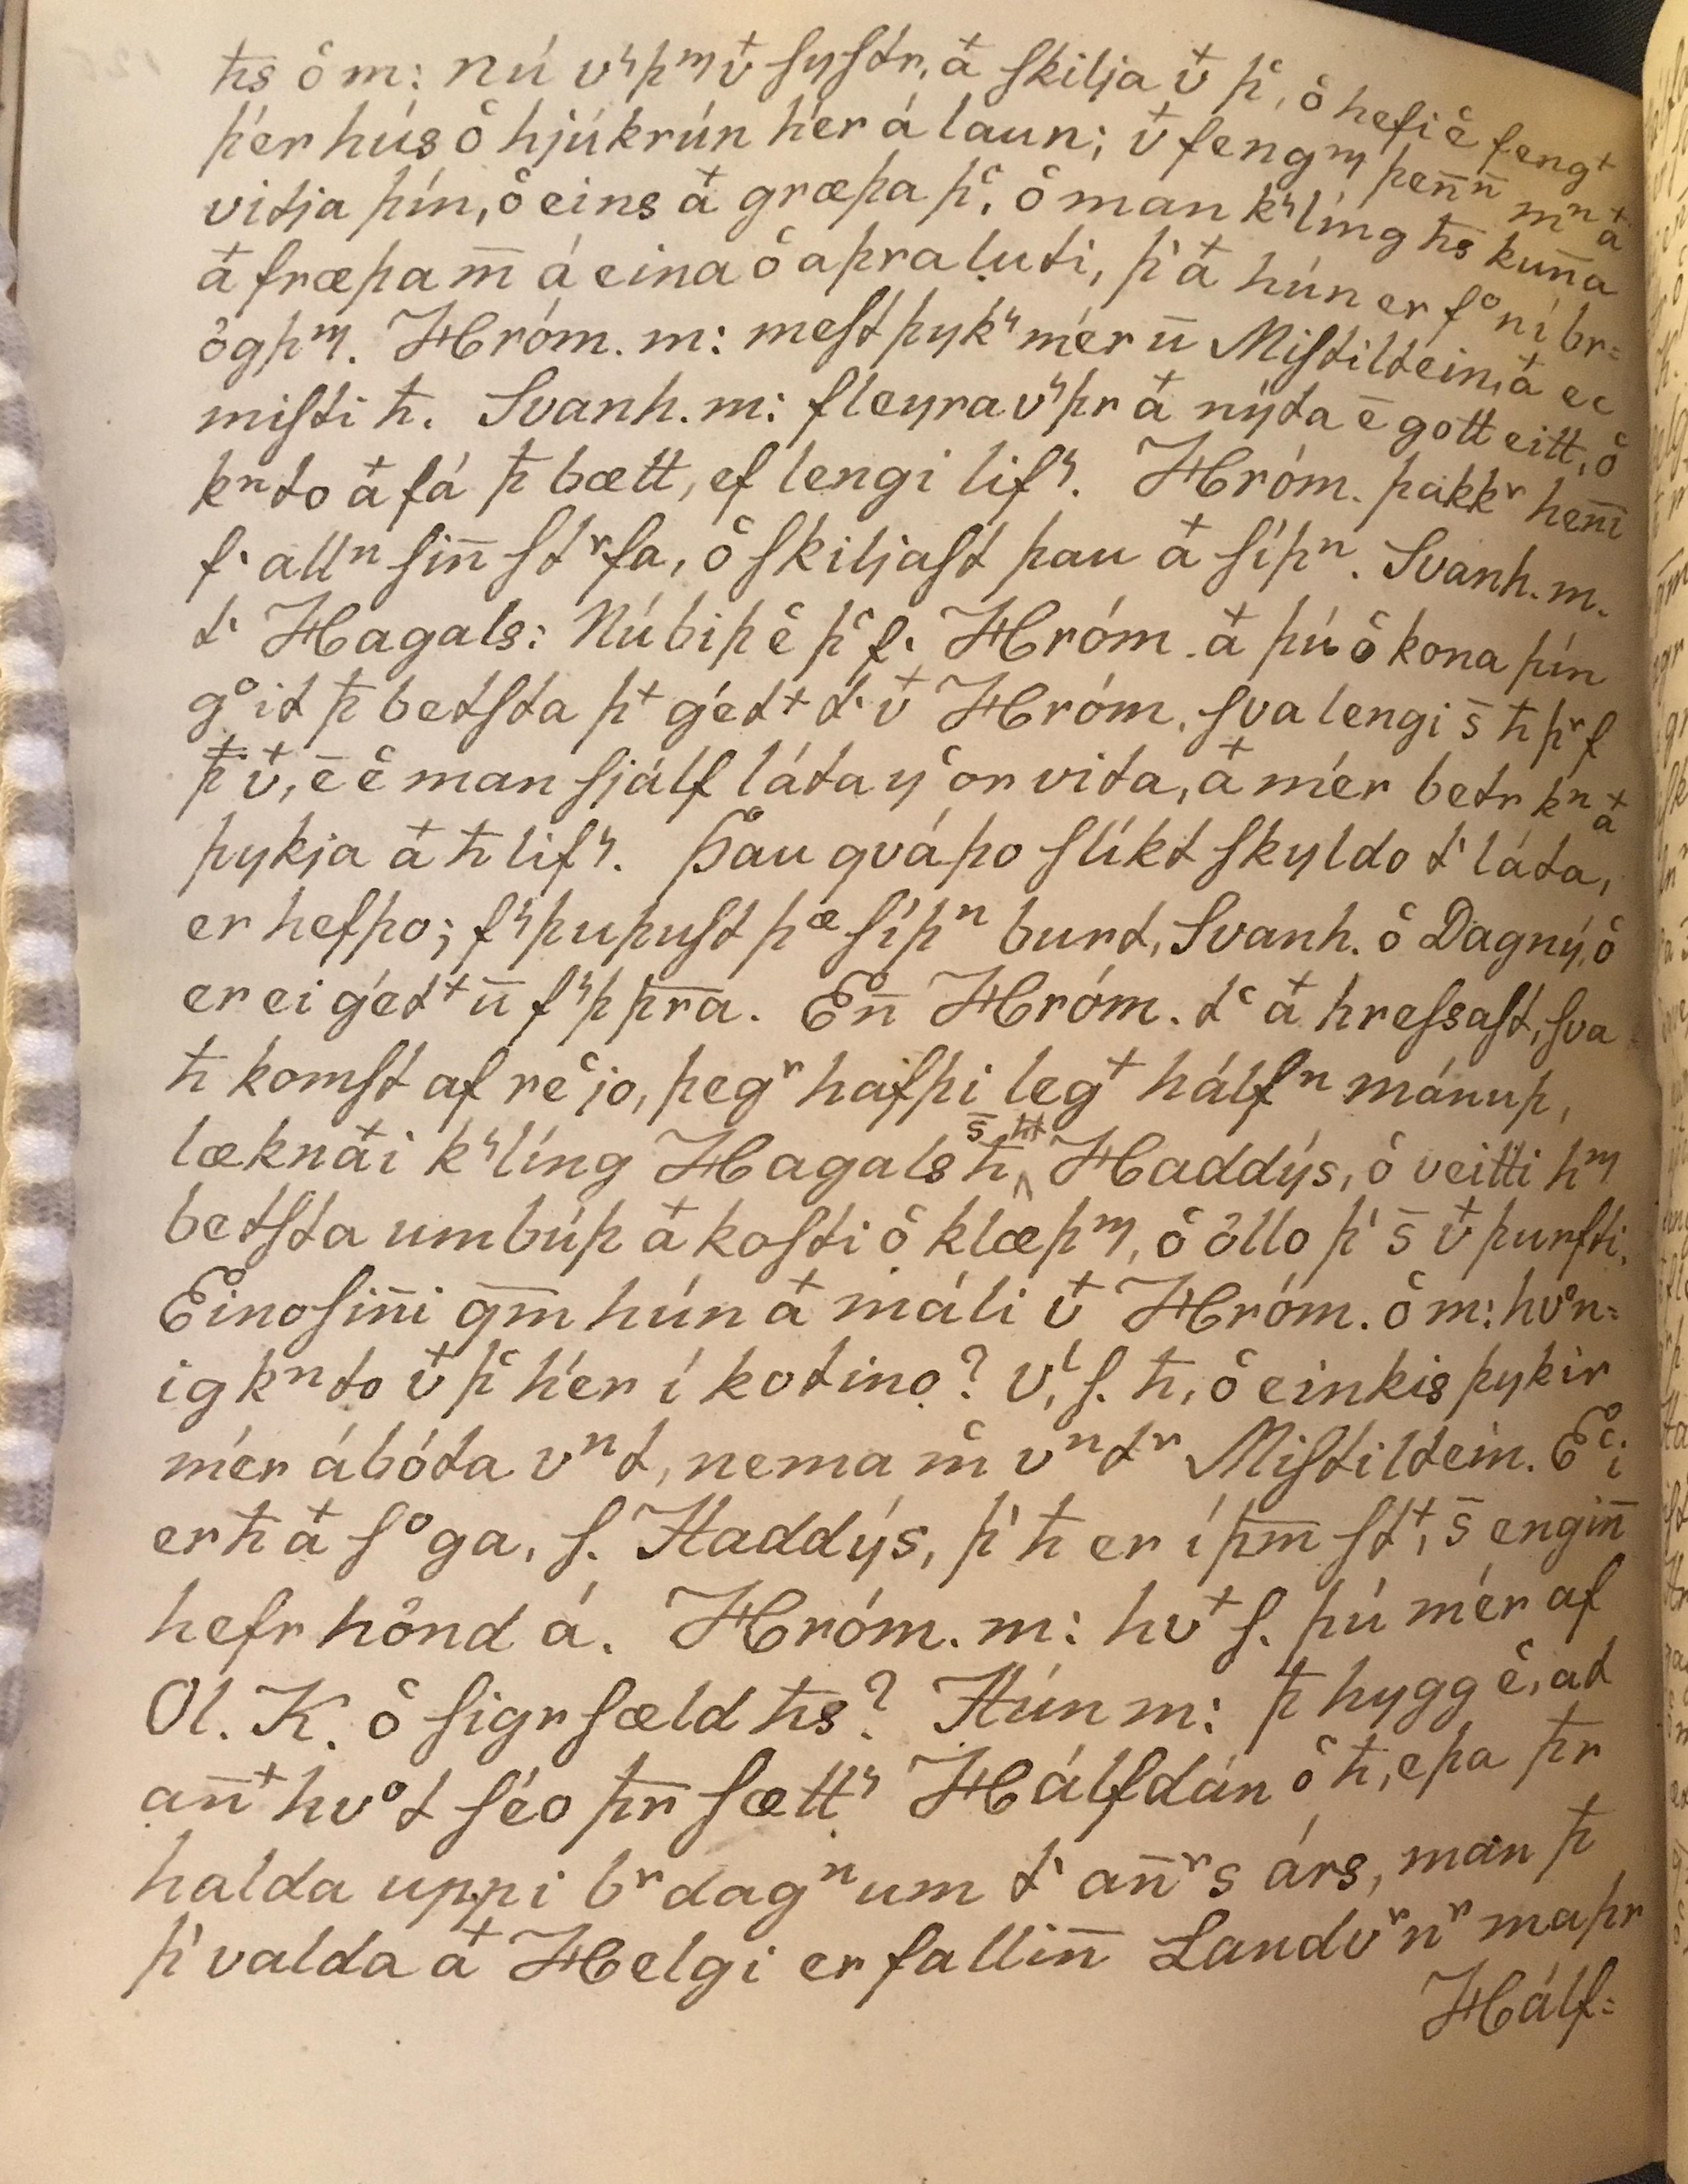 ħs ꝍ m: nú vˢþᵐ v͛ syſtr, a͛ ſkilja v͛ þͨ, oͨ hefi eͨ fengᵗ
þér hús oͨ hjúkrún hér á laun; v͛ fengᵐ þen̅n̅ mⁿ a͛
vitja þín, oͨ eins a͛ græþa þͨ, oͨ man kˢlíng ħs kun̅a
a͛ fræþa m̅ á eina oͨ aþra luti, þ͛ a͛ hún er fᵒní br=
ögþᵐ. Hróm. m: meſt þykˢ mér u̅ Miſtiltein, a͛ ec
miſti ħ. Svanh. m: fleyra vˢþr a͛ nýta e̅ gott eitt, oͨ
kⁿto a͛ fá þ̅ bætt, ef lengi lifˢ. Hróm. þakkʳ hen̅i
f͛ allⁿ ſin̅ ſtʳfa, oͨ ſkiljaſt þau a͛ ſíþⁿ. Svanh. m.
t͛ Hagals: Nú biþ eͨ þͨ f͛ Hróm. a͛ þú oͨ kona þín
gᵒit þ̅ betſta þᵗ gétᵗ t͛ v͛ Hróm. ſva lengi s̅ ħ þʳf
þ̅ v͛, e̅ eͨ man ſjálf láta yͨor vita, a͛ mér betr kⁿ a͛
þykja a͛ ħ lifˢ. Þau qváþo ſlíkt ſkyldo t͛ láta,
er hefþo; fˢþuþuſt þᵆ ſíþⁿ burt, Svanh. oͨ Dagný, oͨ
er ei gétᵗ u̅ fˢþ þr̅a. En̅ Hróm. tͨ a͛ hreſsaſt, ſva
ħ komſt af reͨjo, þegʳ hafþi legᵗ hálfⁿ mánuþ,
læknaͭi kˢlíng Hagals ħ, s̅ ħt Haddýs, oͨ veitti hᵐ
betſta umbúþ a͛ koſti oͨ klæþᵐ, oͨ öllo þ͛ s̅ v͛ þurfti.
Eino ſin̅i gm̅ hún a͛ máli v͛ Hróm. oͨ m: hvᵒn=
ig kⁿto v͛ þͨ hér í kotino? vˡ, ſ. ħ, oͨ einkis þykir
mér ábóta vⁿt, nema m̅ vⁿtʳ Miſtiltein. Eͨi
er ħ a͛ ſᵒga, ſ. Haddýs, þ͛ ħ er í þm̅ ſtᵗ, s̅ engin̅
hefr hönd á. Hróm. m: hvᵗ ſ. þú mér af
Ol. K. oͨ ſigrſæld ħs? Hún m: þ̅ hygg eͨ, at
an̅ᵗhvᵒt ſéo þr̅ ſættˢ Hálfdán oͨ ħ, eþa þr̅
halda uppi bʳdagⁿum t͛ an̅ʳs árs, man þ̅
þ͛ valda a͛ Helgi er fallin̅ Landvʳnʳ maþr
Hálf=